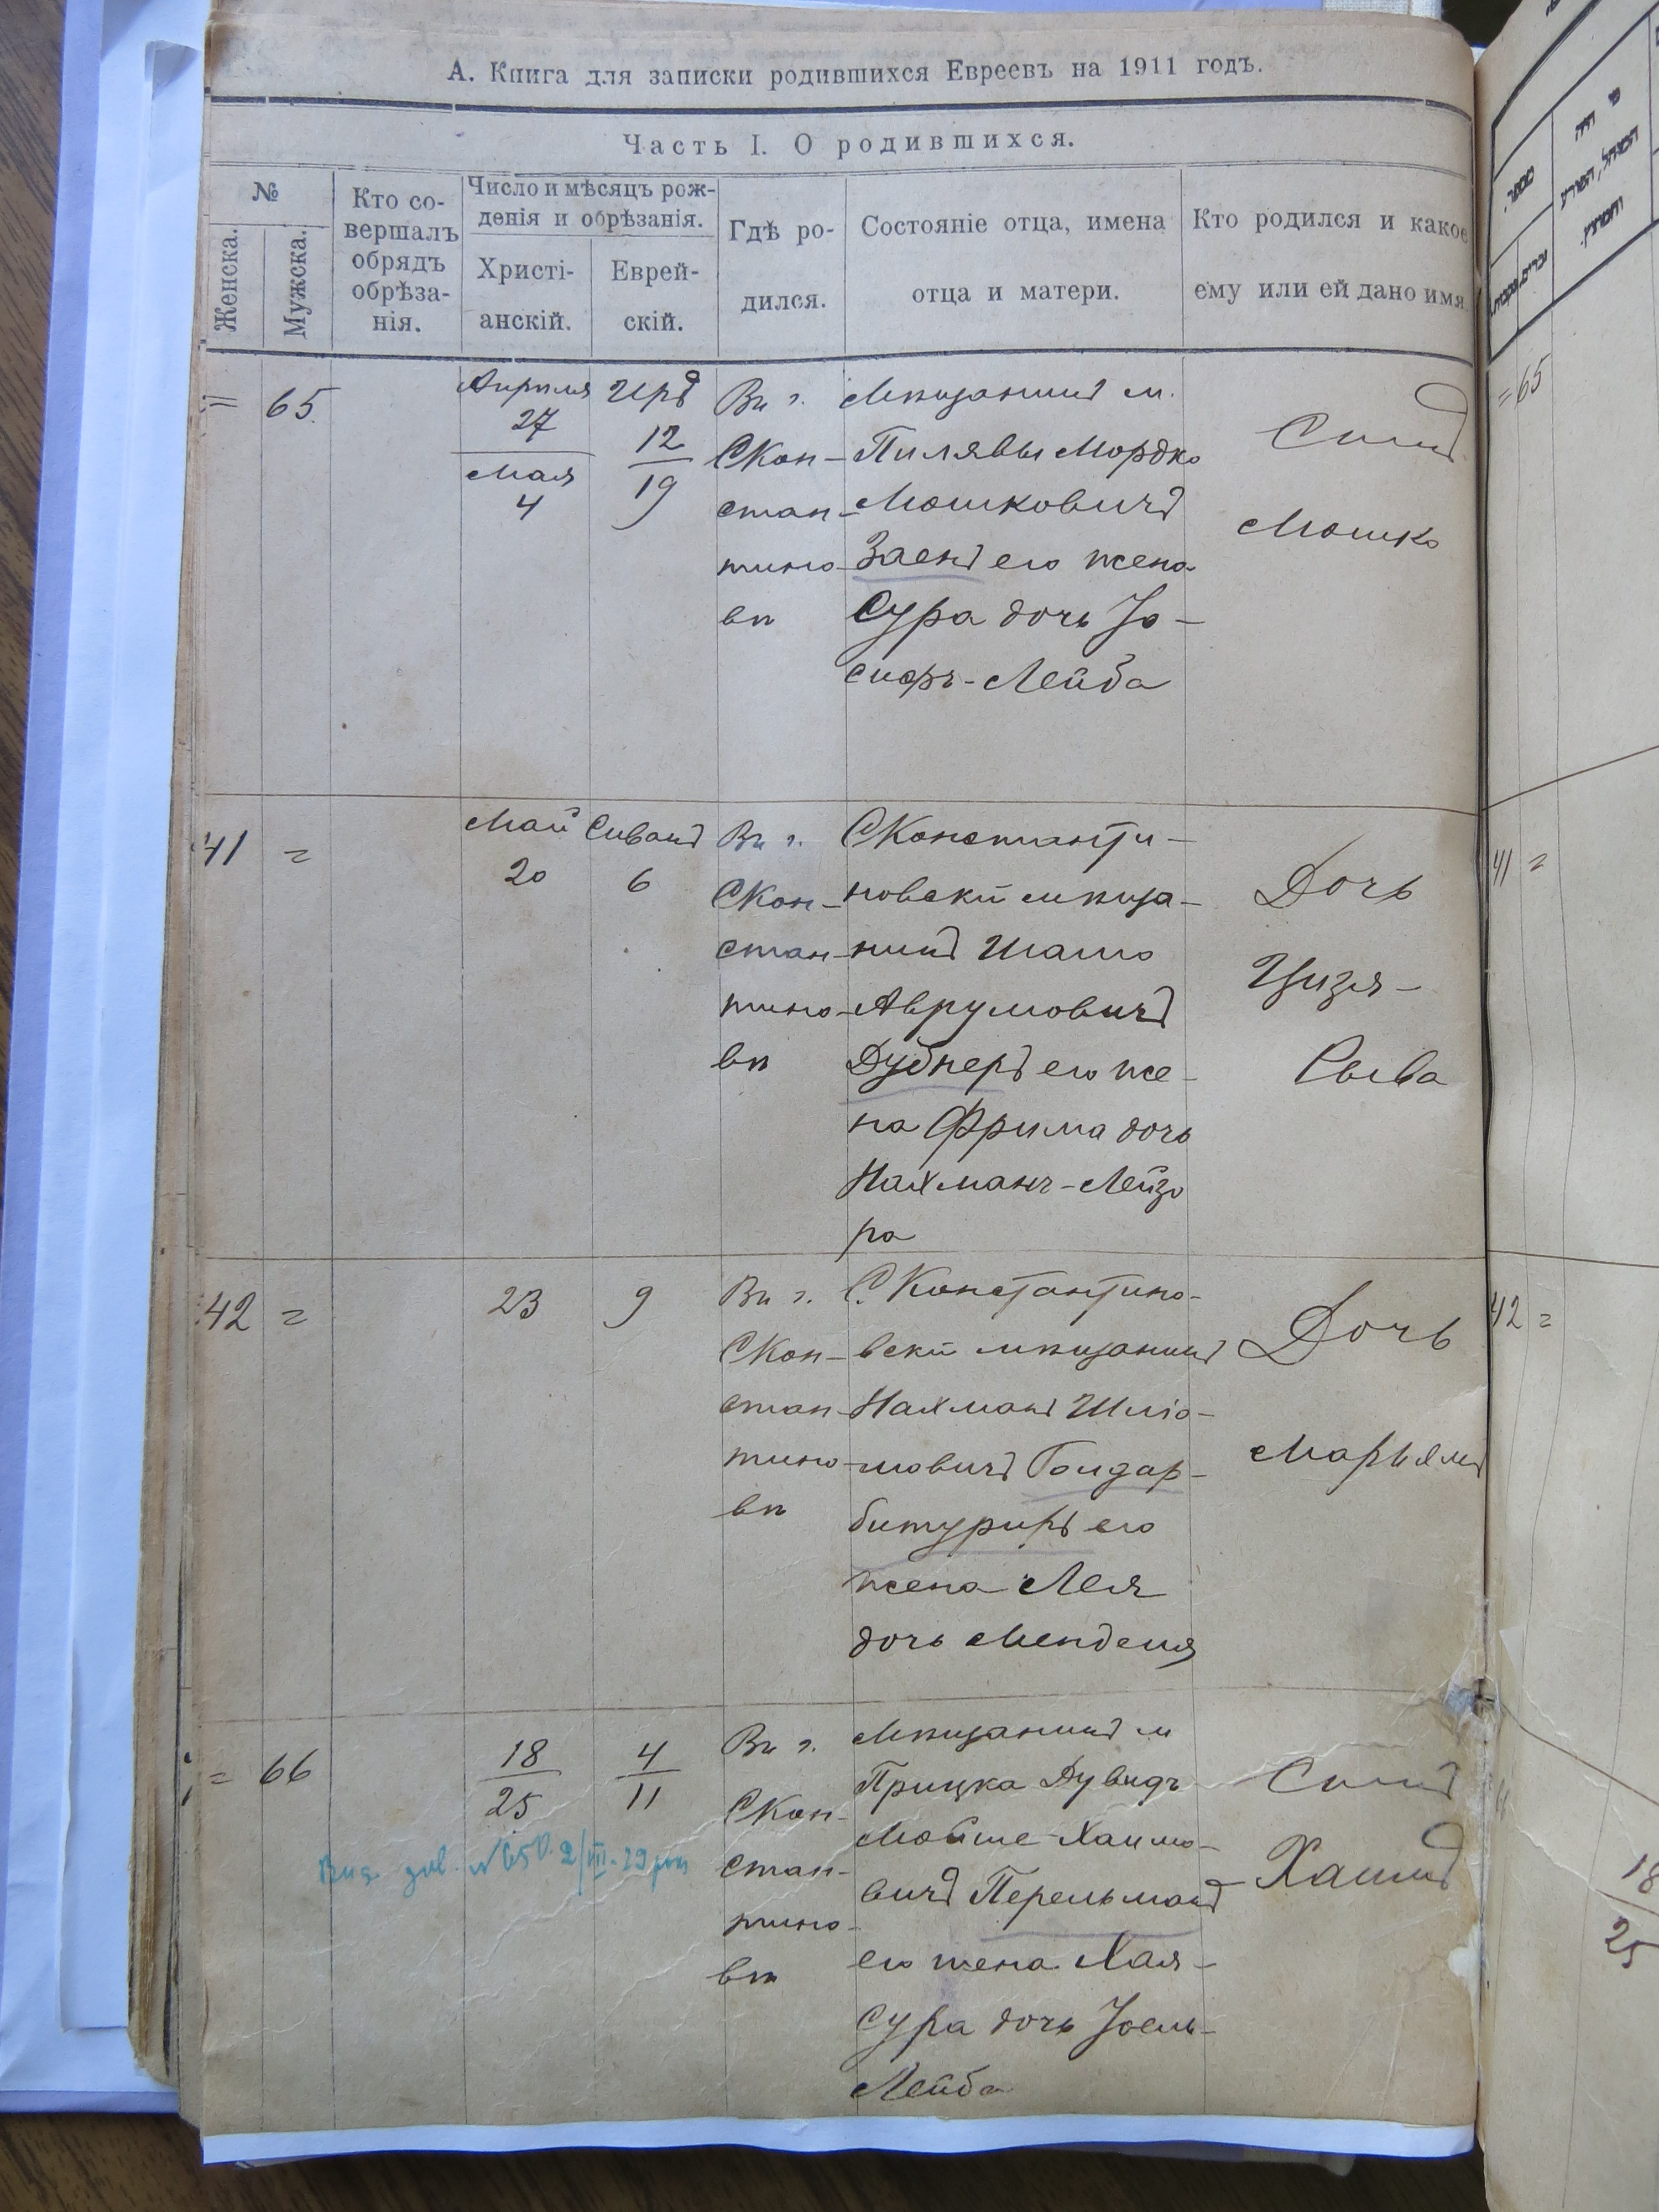 А. Книга для записки родившихся Евреевъ на 1911 годъ.
Часть I. О родившихся.
№
Женска.
Мужска.
Кто со-
вершалъ
обрядъ
обрѣза-
нія.
Число и мѣсяцъ рож-
денія и обрѣзанія.
Христі-
анскій.
Еврей-
скій.
Гдѣ ро-
дился.
Состояніе отца, имена
отца и матери.
Кто родился и какое
ему или ей дано имя
= 65
Апрѣля
27
Мая
4
Иръ
12
19
Въ г.
СКон-
стан-
тино-
вѣ
Мѣщанинъ м.
Пилявы Мордко
Мошковичъ
Заенъ его жена
Сура дочь Іо-
сифъ-Лейба
Сынъ
Мошко
41 =
Май
20
Сиванъ
6
Въ г.
СКон-
стан-
тино-
вѣ
СКонстанти-
новскій мѣща-
нинъ Шамо
Аврумовичъ
Дубнеръ его же-
на Фрима дочь
Нахманъ-Лейзо
ра
Дочь
Цизя-
Сыва
42 =
23
9
Въ г.
СКон-
стан-
тино-
вѣ
С.Константино-
вскій мѣщанинъ
Нахманъ Шліо-
мовичъ
его
жена Лея
дочь Менделя
Дочь
Марьямъ
= 66
18
25
4
11
Въ г.
СКон-
стан-
тино-
вѣ
Мѣщанинъ м
Грицка Дувидъ
Мойше-Хаимо-
вичъ Перельманъ
его жена Хая-
Сура дочь Іоель-
Лейба
Сынъ
Хаимъ
= 65
41 =
42 =
18
25